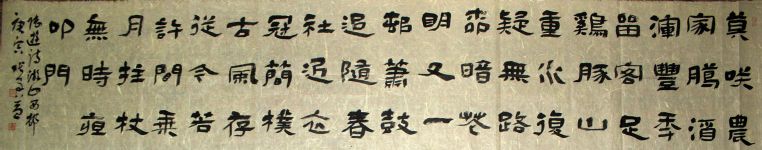 莫咲農
家臈酒
渾豐秊
留客足
鷄豚山
重水復
疑無路
桺暗花
明又一
邨蕭鼓
追隨春
社近衣
冠簡樸
古風存
從今若
許閒乘
月拄杖
無時夜
叩門
陸游詩游山西邨
庚寅